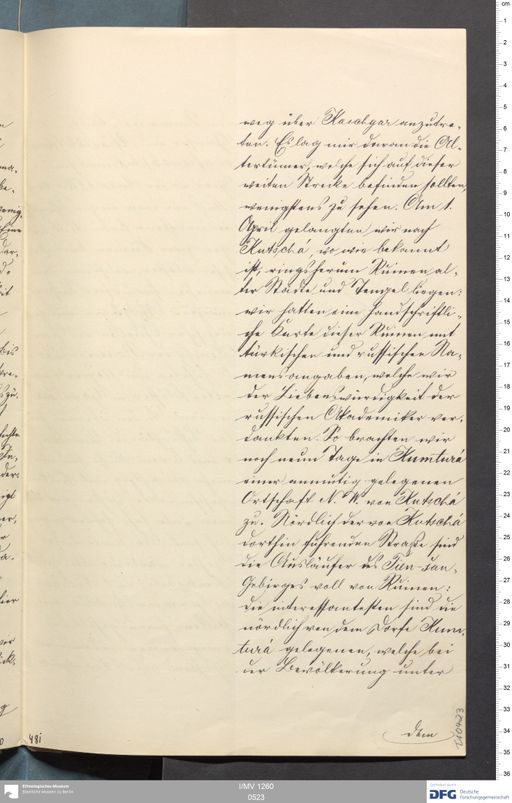 weg über Kaschgar anzutre-
ten. Es lag mir daran die Al-
tertümer, welche sich auf dieser
weiten Strecke befinden sollten,
wenigstens zu sehen. Am 1.
April gelangten wir nach
Kutschá, wo wie bekannt
ist, ringsherum Ruinen al-
ter Städte und Tempel liegen:
wir hatten eine handschriftli-
che Karte dieser Ruinen mit
türkischen und russischen Na-
mensangaben, welche wir
der Liebenswürdigkeit der
russischen Akademiker ver-
dankten. So brachten wir
noch neun Tage in Kumturá
einer anmutig gelegenen
Ortschaft N. W. von Kutschá
zu. Nördlich der von Kutschá
dorthin führenden Straße sind
die Ausläufer des Tien-san-
Gebirges voll von Ruinen:
die interessantesten sind die
nördlich von dem Dorfe Kum-
turá gelegenen, welche bei
der Bevölkerung unter
dem
481
I/MV 1260
0523
Ethnologisches Museum
Staatliche Museen zu Berlin
DFG Deutsche
Forschungsgemeinschaft